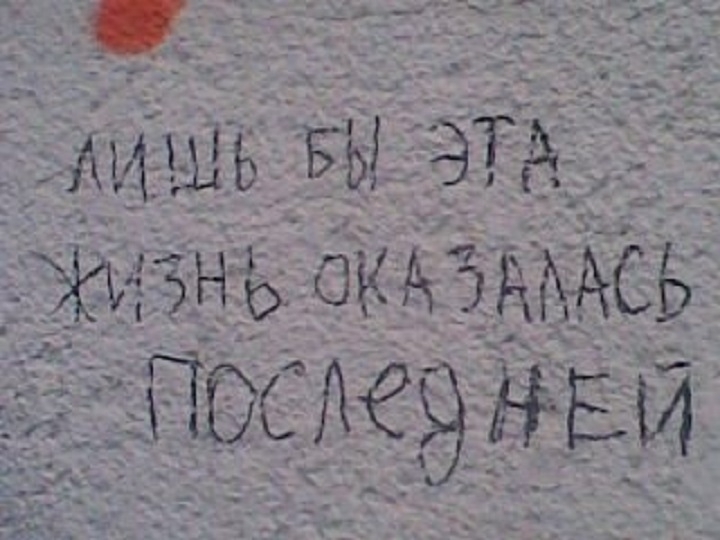 ЛИШЬ БЫ ЭТА
ЖИЗНЬ ОКАЗАЛАСЬ
ПОСЛЕДНЕЙ